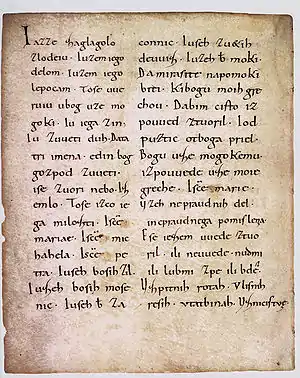 Iazze zaglagolo
zlodeiu. Iuzem iego
delom. Iuzem iego
lepocam. Tose uue
ruiu ubog uze mo
goki. Iu iega zin.
Iu zuueti duh. Data
tri imena. edin bog
gozpod zuueti.
ise zuori nebo. Isi
emlo. Tose iszco ie
ga milosti. Isce
mariae. Isce mic
hahela. Isce pe
tra. Iuseh bosih zil.
Iuseh bosih mose
nic. Iuseh b za
connic. Iuseh zuetih
deuuiz. Iuzeh b moki.
Da mirasite napomoki
biti. Kibogu moih gre
chou. Dabim cisto iz
pouued ztuoril. Iod
puztic otboga priel.
Bogu uze mogokemu.
izpouuede uze moie
greche. Isce marie.
uzeh nepraudnih del.
inepraudnega pomislena.
Ese iezem uuede ztuo
ril. ili neuuede. nudmi
ili lubmi zpe ili bde.
Uzpitnih rotah. Vlisnih
resih. vtatbinah. Uznicistoe.